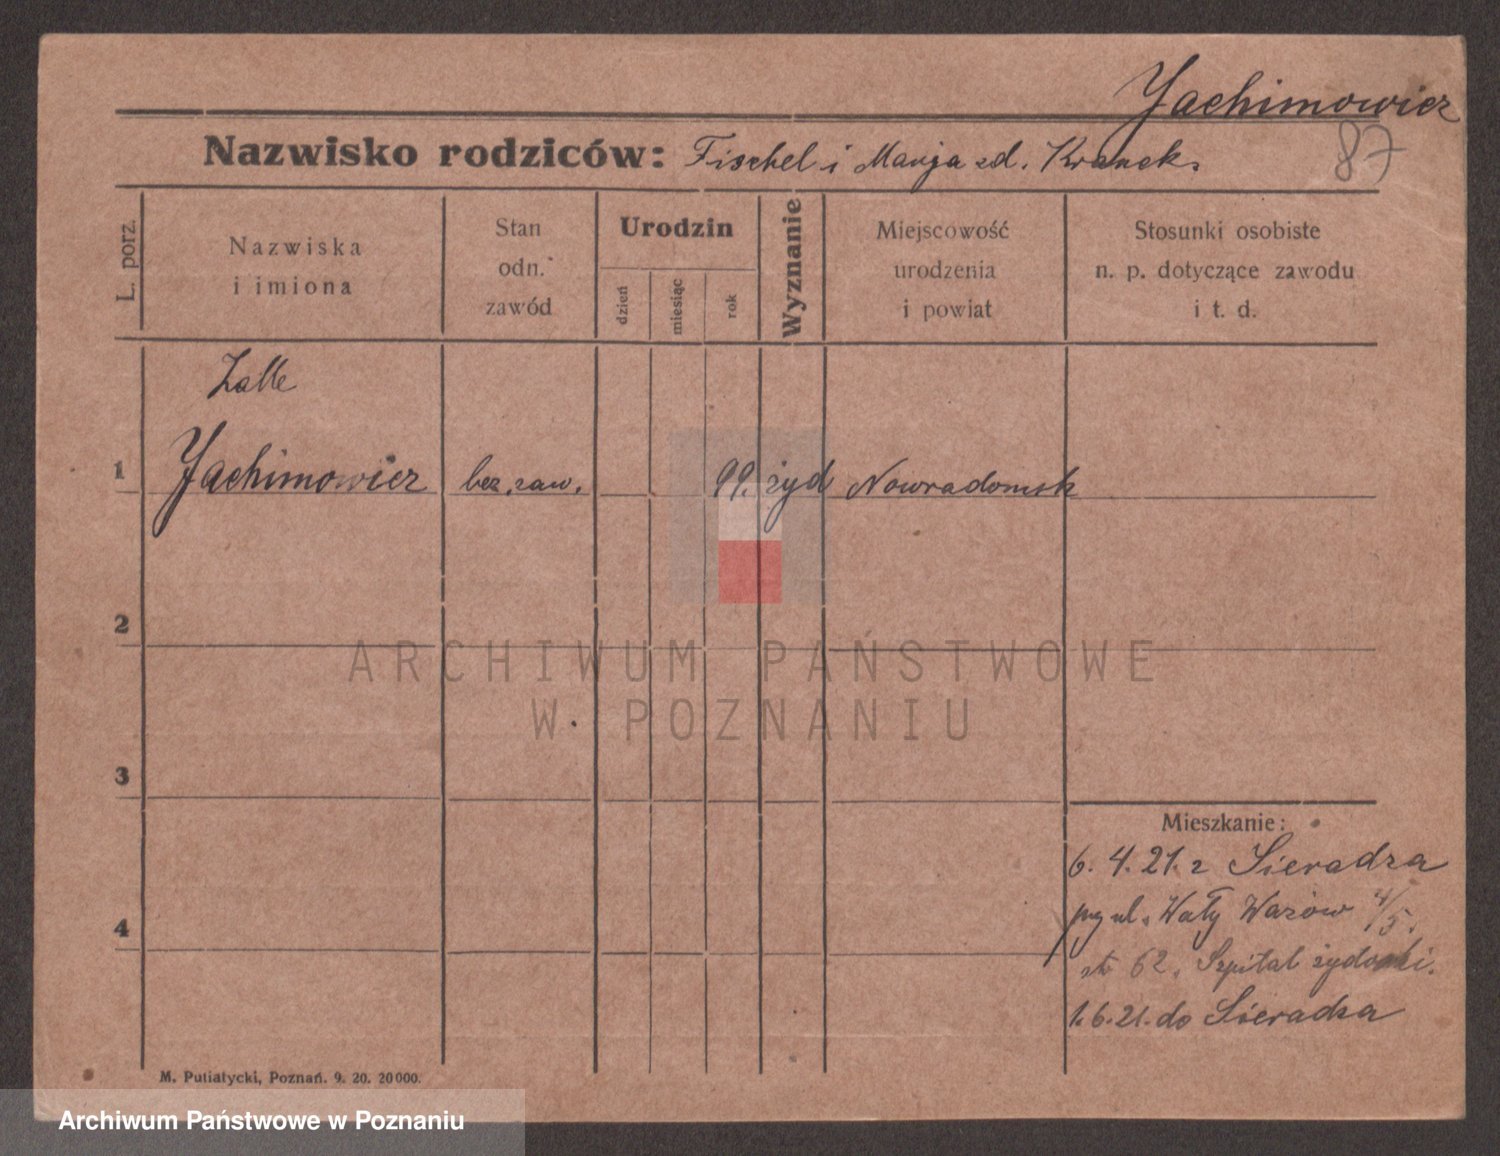 Jachimowicz
87
Nazwisko rodziców: Fischel i Marja zd. Kranek.
L. porz.
Nazwiska
i imiona
Stan
odn.
zawód
Urodzin
dzień
miesiąc
rok
Wyznanie
Miejscowość
urodzenia
i powiat
Stosunki osobiste
n. p. dotyczące zawodu
i t. d.
Zalle
1 Jachimowicz bez. zaw. 99. żyd Nowradomsk
2
3
4
ARCHIWUM PAŃSTWOWE
W POZNANIU
Mieszkanie:
6. 4. 21. z Sieradza
ul. Wały Wazów 4/5.
62. Szpital żydowski.
1. 6. 21. do Sieradza
M. Putiatycki, Poznań. 9. 20. 20000.
Archiwum Państwowe w Poznaniu